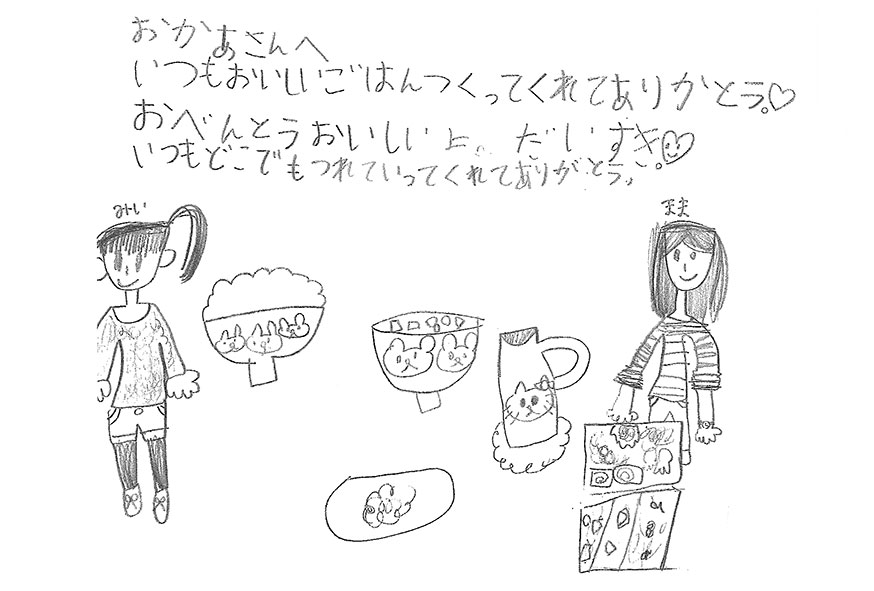 おかあさんへ
いつもおいしいごはんつくってくれてありかとう。♡
おべんとうおいしいよ。だいすき。♡
いつもどこでもつれていってくれてありがとう。
みい
まま